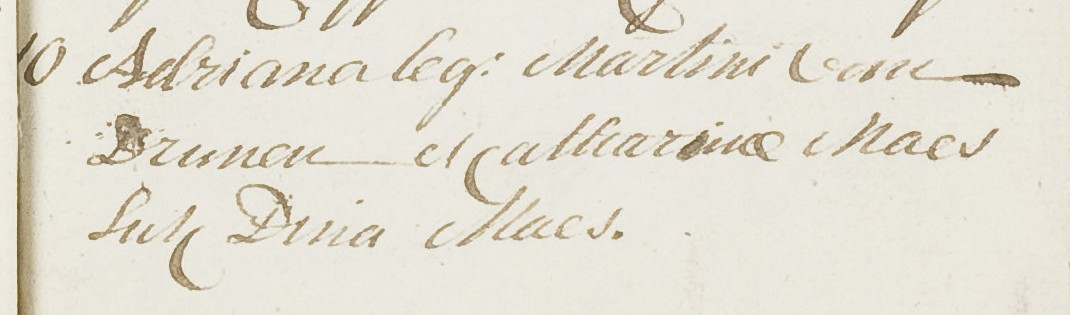 10 Adriana leg: Martini van
Drunen et Catharinæ Maes
Sus Dina Maes.